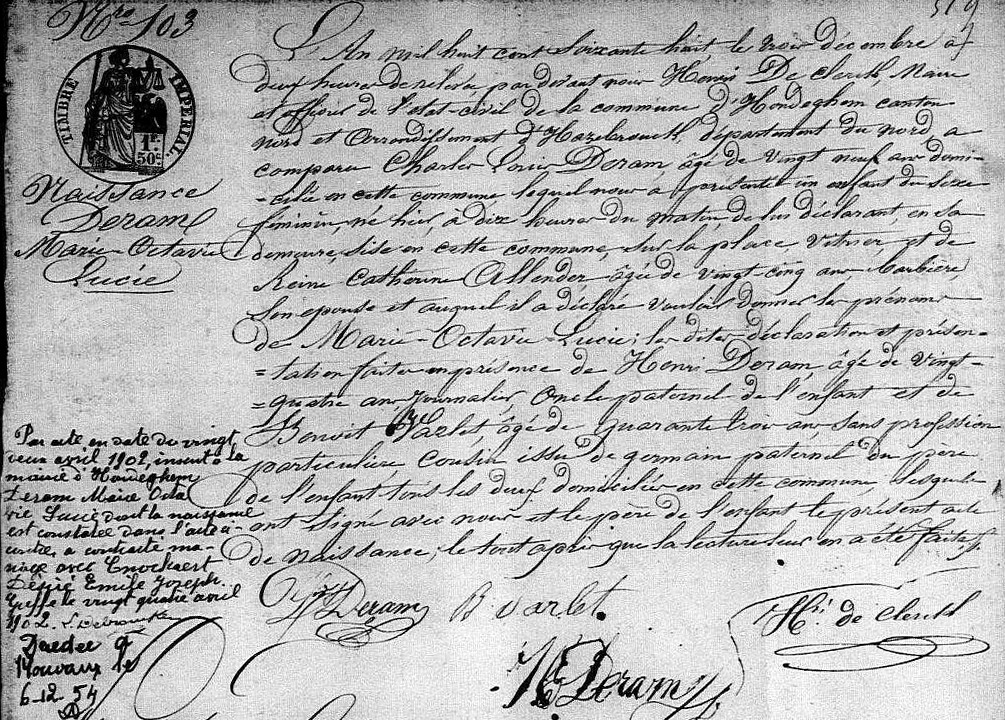 Nro 103
519
TIMBRE IMPERIAL
1F.
50c.
Naissance
Deram
Marie-Octavie
Lucie
L'An mil huit cent soixante huit le trois décembre à
deux heures de relevée par devant nous Henri De Clerck, Maire
et officier de l'état-civil de la commune d'Hondeghem canton
nord et arrondissement d'Hazebrouck, département du nord, a
comparu Charles Louis Deram, âgé de vingt neuf ans domi-
-cilié en cette commune, lequel nous a présenté un enfant du sexe
féminin, né hier, à dix heures du matin, de lui déclarant, en sa
demeure, sise en cette commune, sur la place, et de
Reine Catherine Allender âgée de vingt-cinq ans
son epouse et auquel il a déclaré vouloir donner les prénoms
de Marie-Octavie-Lucie; les dites déclaration et présen-
=tation faites en présence de Henri Deram, âgé de vingt-
=quatre ans Journalier Oncle paternel de l'enfant et de
Benoit Varlet, âgé de quarante trois ans, sans profession
particulière Cousin issu de germain paternel du père
de l'enfant tous les deux domiciliés en cette commune, lesquels
ont signé avec nous et le père de l'enfant le présent acte
de naissance, le tout après que lecture leur en a été faite
Par acte en date du vingt
deux avril 1902, inscrit à la
mairie d'Hondeghem
Deram Marie Octa
vie Lucie dont la naissance
est constatée dans l'acte ci-
contre, a contracté ma-
riage avec Enockaert
Désiré Emile Joseph.
Greffe le vingt quatre avril
1902.
Décédée à
Mouvaux le
6-12-54
Deram
B varlet
Hi. de Clerck
H Deram